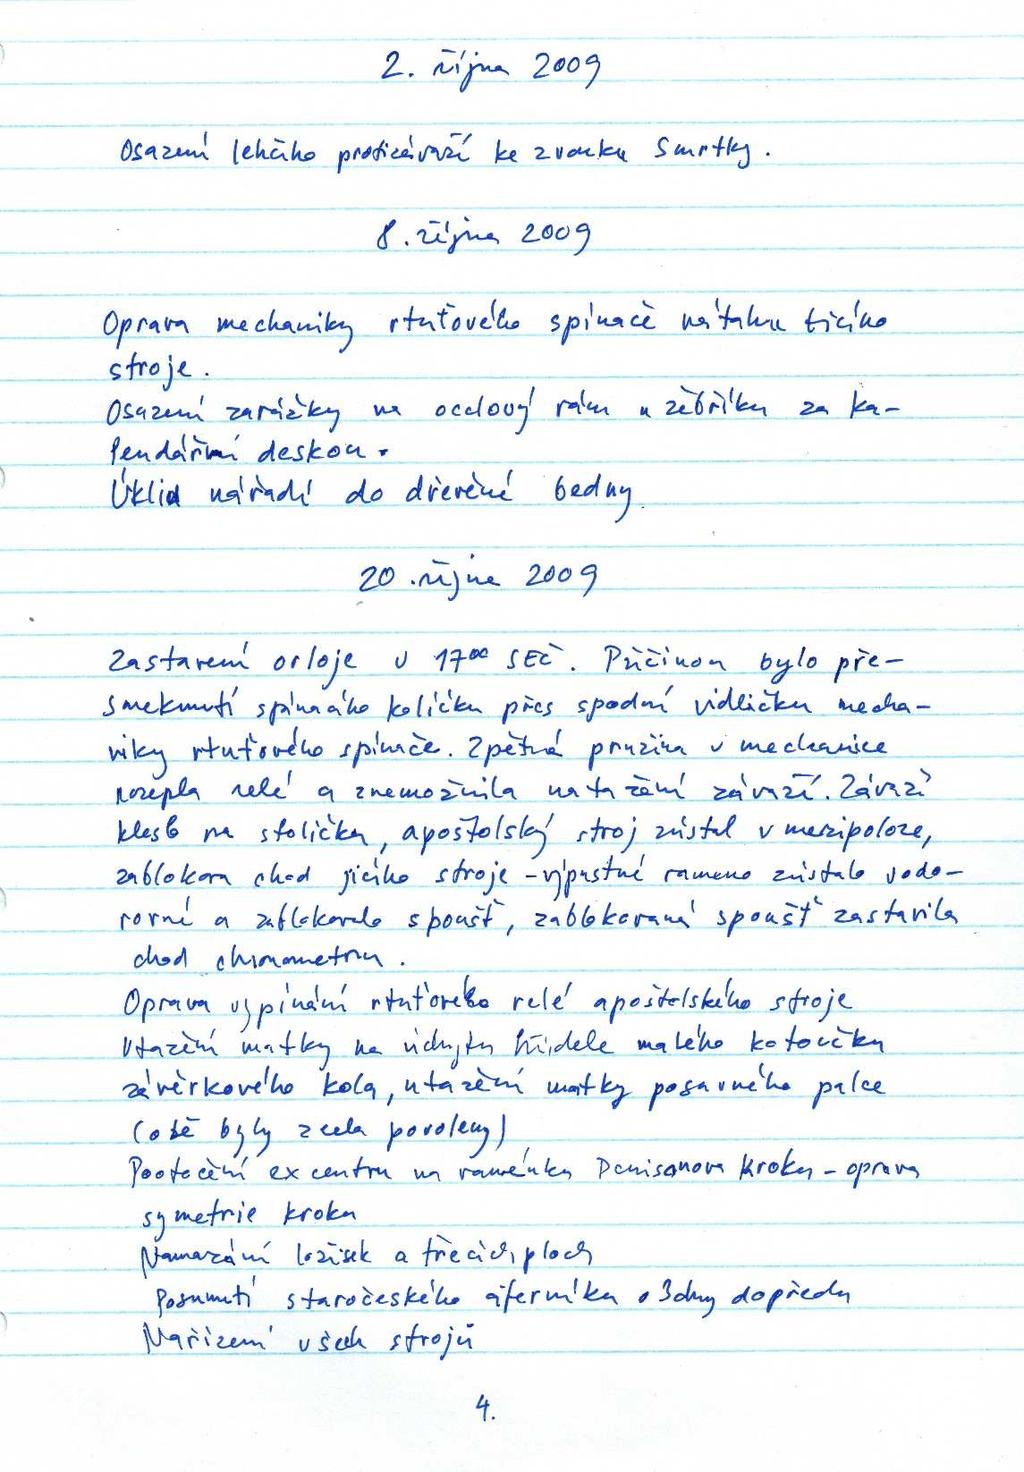 2. října 2009
Osazení lehčího protizávaží ke zvonku Smrtky.
8. října 2009
Oprava mechaniky rtuťového spínače nátahu bicího
stroje.
Osazení zarážky na ocelový rám u žebříku za ka-
lendářní deskou.
Úklid nářadí do dřevěné bedny
20. října 2009
Zastavení orloje v 17⁰⁰ SEČ. Příčinou bylo pře-
smeknutí spínacího kolíčku přes spodní vidličku mecha-
niky rtuťového spínače. Zpětná pružina v mechanice
rozepla relé a znemožnila natažení závaží. Závaží
kleslo na stoličku, apoštolský stroj zůstal v mezipoloze,
zablokoval chod jicího stroje - výpustné rameno zůstalo vodo-
rovně a zablokovalo spoušť, zablokovaná spoušť zastavila
chod chronometru.
Oprava vypínání rtuťového relé apoštolského stroje
Utažení matky na úchytu hřídele malého kotoučku
závěrkového kola, utažení matky posuvného palce
(obě byly zcela povoleny)
Pootočení excentru na raménku Denisonova kroku - oprava
symetrie kroku
Namazání ložisek a třecích ploch
Posunutí staročeského ciferníku o 3 dny dopředu
Nařízení všech strojů
4.